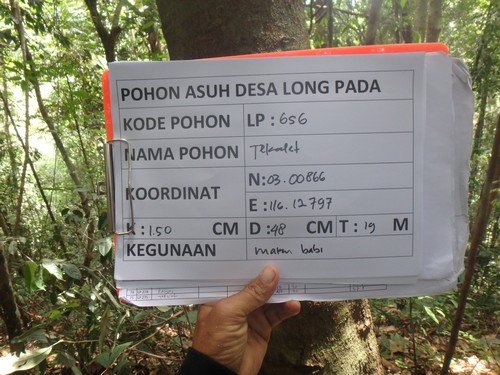 POHON ASUH DESA LONG PADA
KODE POHON LP : 656
NAMA POHON Tekalet
KOORDINAT N : 03.00866
E : 116.12797
K : 150 CM D : 48 CM T : 19 M
KEGUNAAN makan babi